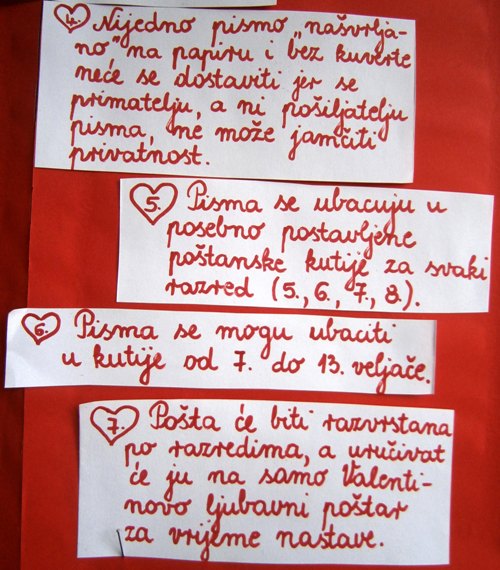 4. Nijedno pismo „našvrlja-
no" na papiru i bez kuverte
neće se dostaviti jer se
primatelju, a ni pošiljatelju
pisma, ne može jamčiti
privatnost.
5. Pisma se ubacuju u
posebno postavljene
poštanske kutije za svaki
razred (5., 6., 7., 8.).
6. Pisma se mogu ubaciti
u kutije od 7. do 13. veljače.
7. Pošta će biti razvrstana
po razredima, a uručivat
će ju na samo Valenti-
novo ljubavni poštar
za vrijeme nastave.